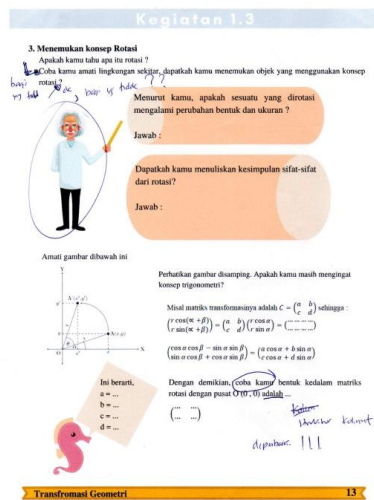 Kegiatan 1.3
3. Menemukan konsep Rotasi
Apakah kamu tahu apa itu rotasi ?
Coba kamu amati lingkungan sekitar, dapatkah kamu menemukan objek yang menggunakan konsep
rotasi ?
bagi yg tidak ?
Menurut kamu, apakah sesuatu yang dirotasi
mengalami perubahan bentuk dan ukuran ?
Jawab :
Dapatkah kamu menuliskan kesimpulan sifat-sifat
dari rotasi?
Jawab :
Amati gambar dibawah ini
Y
A'(x',y')
A(x,y)
O
X
Perhatikan gambar disamping. Apakah kamu masih mengingat
konsep trigonometri?
Misal matriks transformasinya adalah C = (a b / c d) sehingga :
(r cos(∝ +β) / r sin(∝ +β)) = (a b / c d) (r cos α / r sin α) = (... ... ... / ... ... ...)
(cos α cos β − sin α sin β / sin α cos β + cos α sin β) = (a cos α + b sin α / c cos α + d sin α)
Ini berarti,
a = ...
b = ...
c = ...
d = ...
Dengan demikian, coba kamu bentuk kedalam matriks
rotasi dengan pusat O (0 , 0) adalah ...
(... ... / ... ...)
struktur kalimat
diperbaiki !!!
Transfromasi Geometri
13